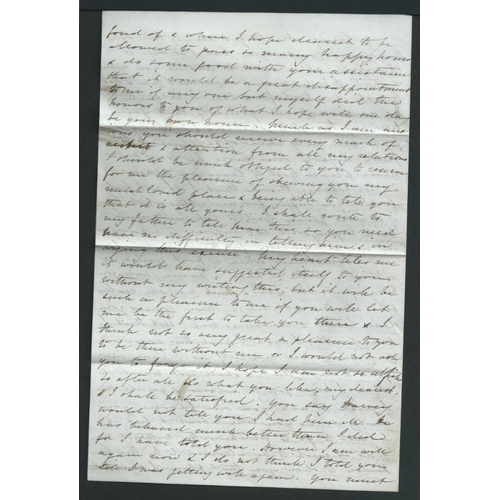 fond of & where I hope dearest to be
allowed to pass so many happy hours
& do some good with your assistance
that it would be a great disappointment
to me if any one but myself did the
honors to you of what I hope will one day
be your own house. Much as I am anx-
ious you should receive every mark of
respect & attention from all my relations
I should be much obliged to you to reserve
for me the pleasure of shewing you my
much loved place & being able to tell you
that it is all yours. I shall write to
my father to tell him this so you need
have no difficulty in telling him & in
this excuse. My heart tells me
it would have suggested itself to you
without my writing this, but it will be
such a pleasure to me if you will let
me be the first to take you there & I
think not so very great a pleasure to you
to be there without me or I would not ask
you to forego it. I hope I am not so selfish
So after all do what you like, my dearest,
& I shall be satisfied. You say Harvey
would not tell you I had been ill. He
has behaved much better than I did
for I have told you. However I am well
again now & I do not think I told you
till I was getting well again. You must